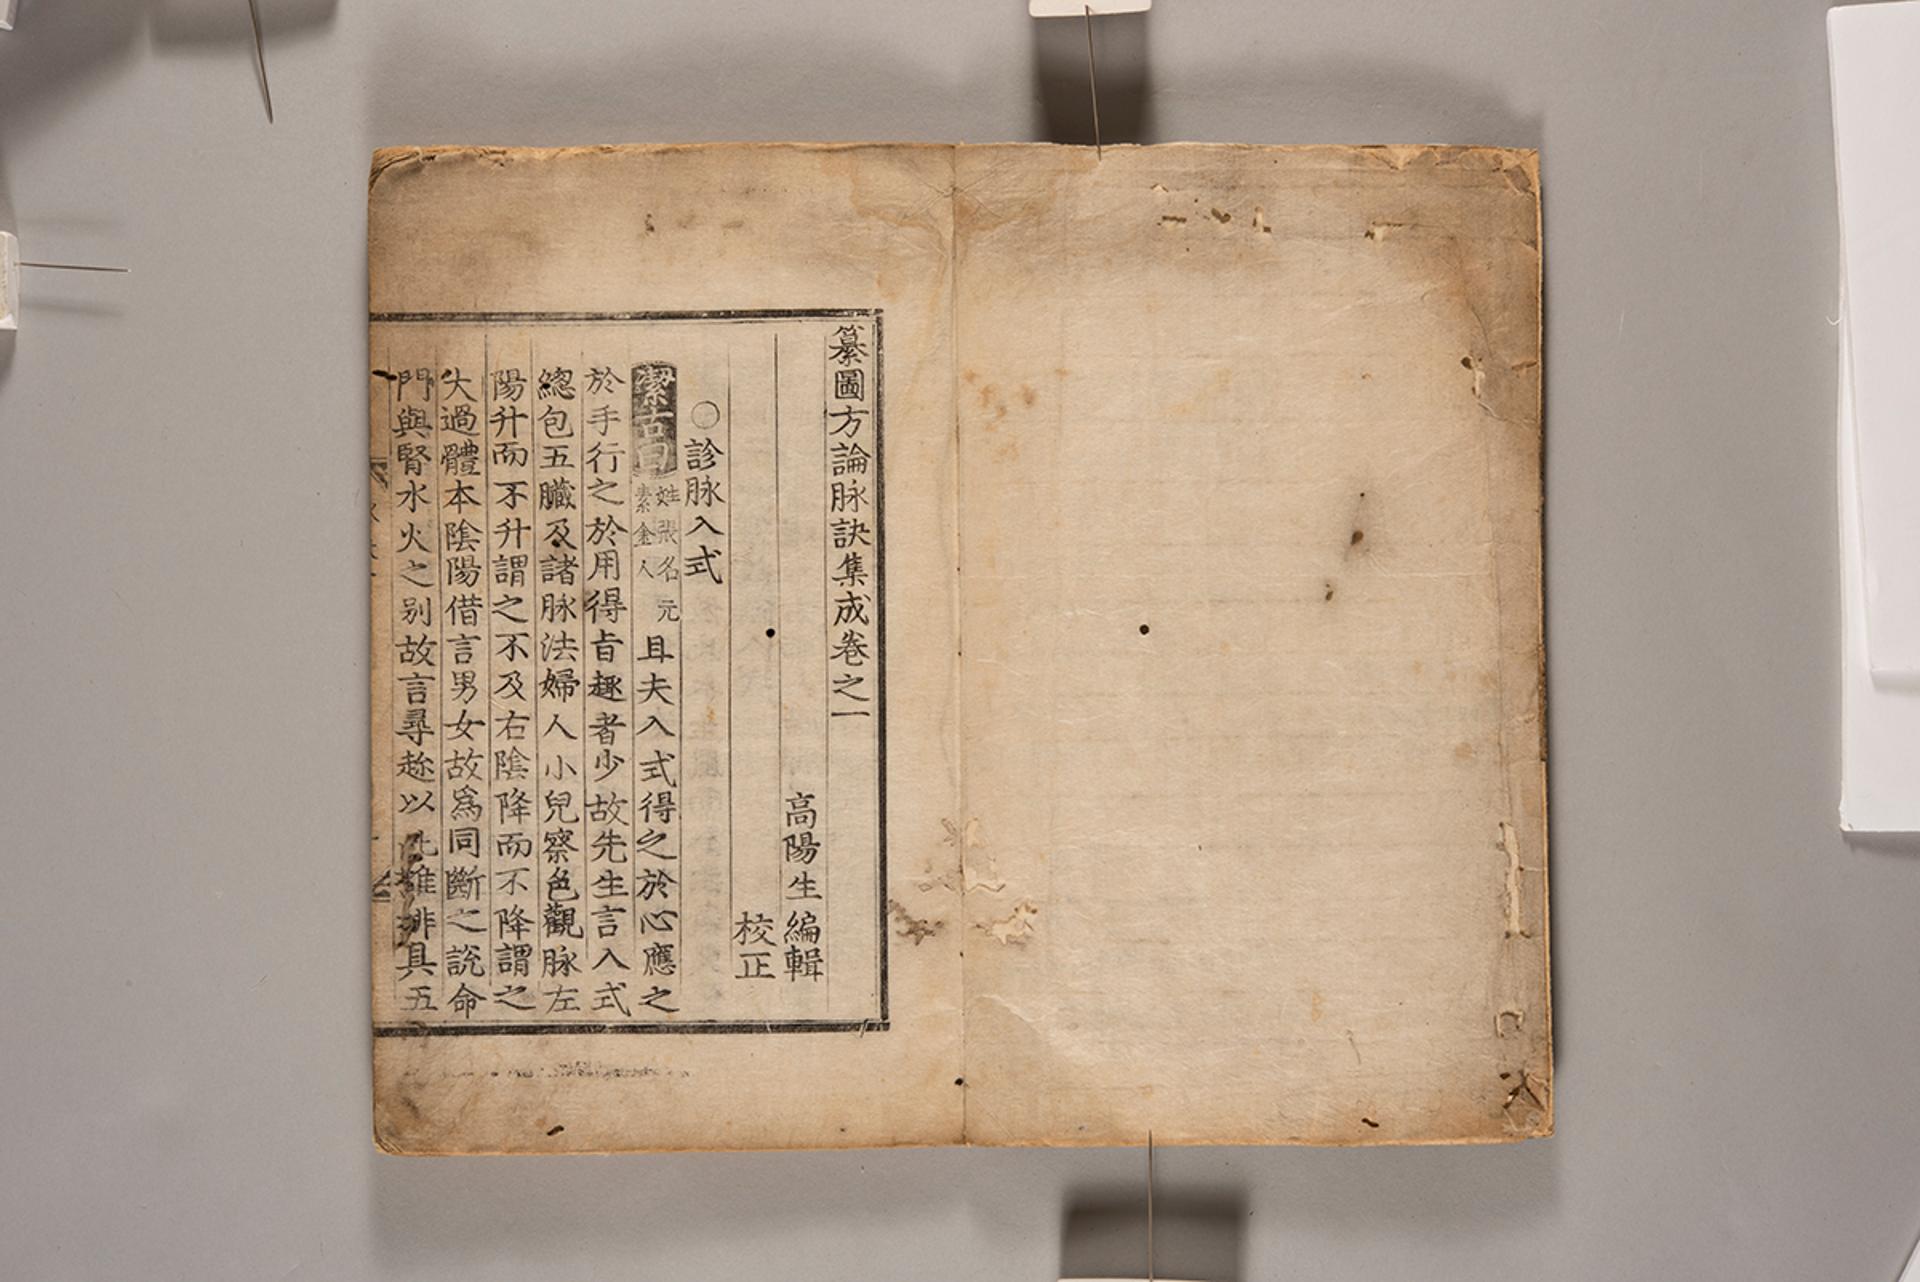 纂圖方論脉訣集成卷之一
高陽生編輯
校正
○診脉入式
潔古曰姓張名元素金人且夫入式得之於心應之
於手行之於用得旨趣者少故先生言入式
緫包五臟及諸脉法婦人小兒察色觀脉左
陽升而不升謂之不及右陰降而不降謂之
大過體本陰陽借言男女故爲同斷之說命
門與腎水火之别故言尋趂以此誰排具五